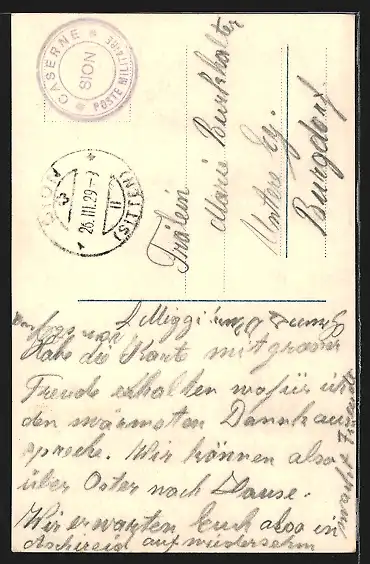 CASERNE
SION
POSTE MILITAIRE
SION
(SITTEN)
26.III.29
II
Frälein
Marie Burkhalter
Untere Ey.
Burgdorf
Habe die Karte mit grosser
Freude erhalten wofür ich
den wärmsten Dannk aus
spreche. Wir können also
über Oster nach Hause.
Wir erwarten Euch also in
auf wiedersehn